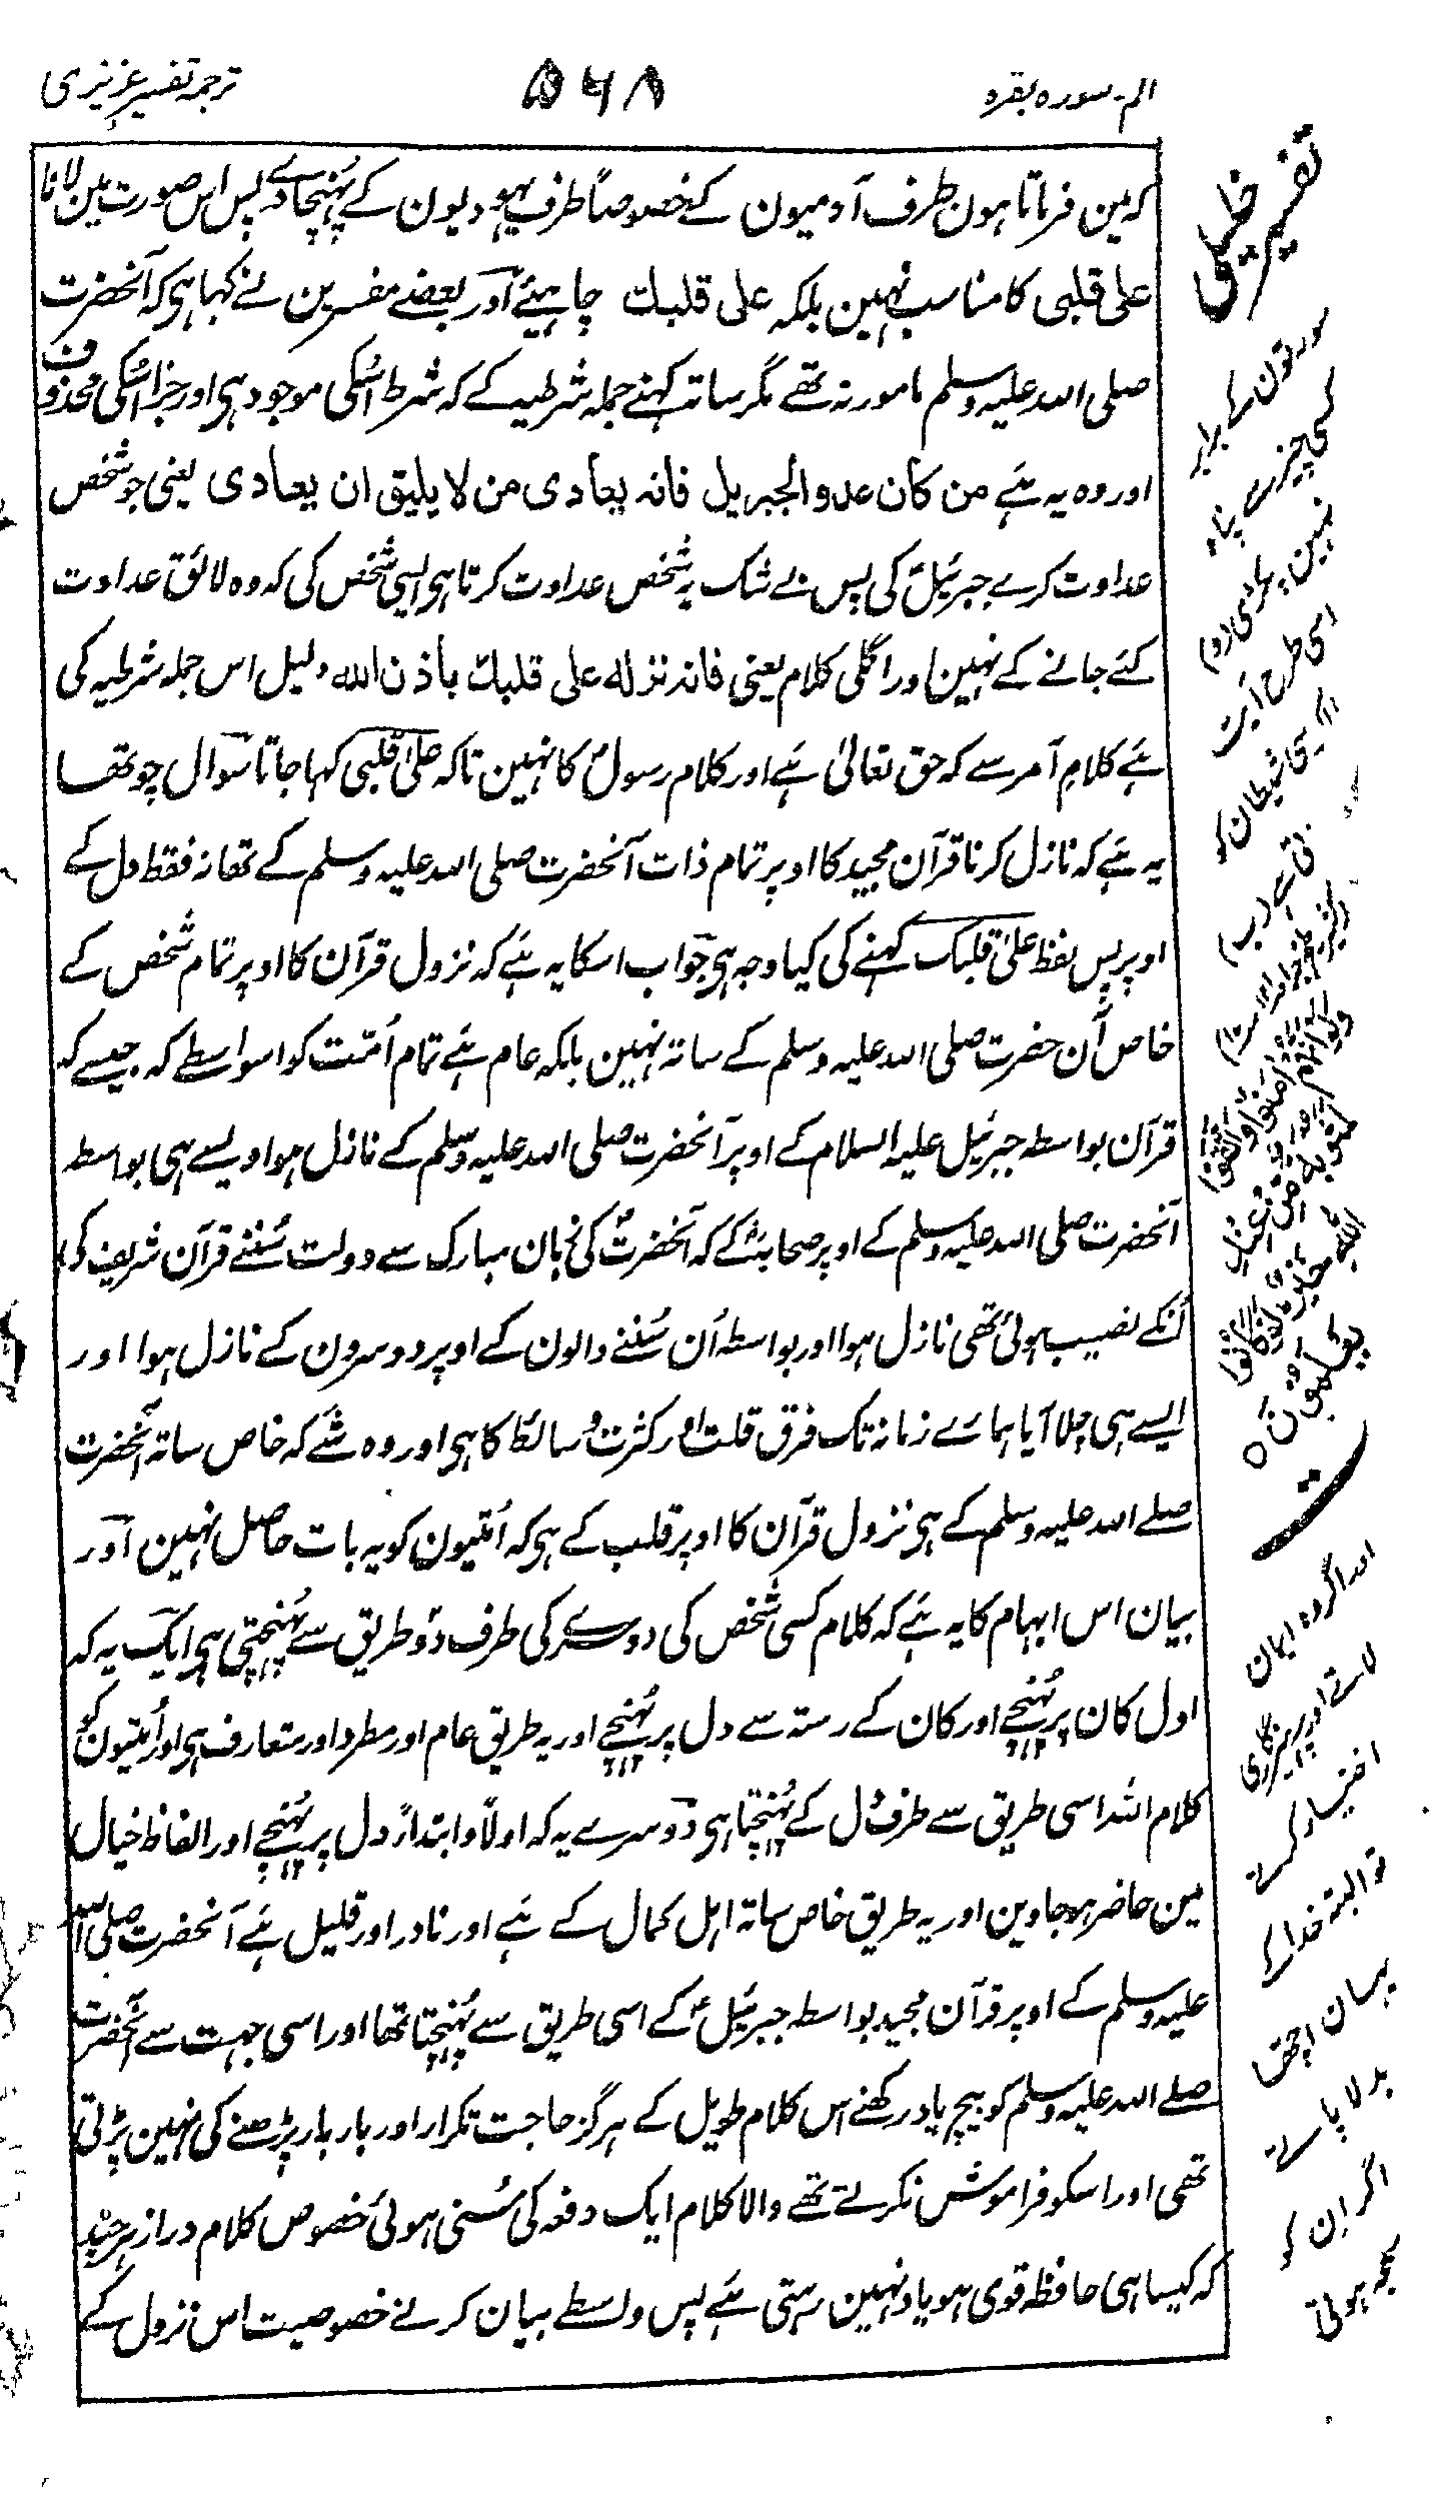 الم۔ سورہ بقرہ
۵۶۸
ترجمہ تفسیر عزیزی
کہ مین فرماتا ہون طرف آدمیون کے خصوصاً طرف یہودیون کے پہنچادے پس اس صورت مین لانا
علی قلبی کا مناسب نہین بلکہ علی قلبك چاہیئے اور بعضے مفسرین نے کہا ہی کہ آنحضرت
صلی اللہ علیہ وسلم مامور نہ تھے مگر ساتہ کہنے جملہ شرطیہ کے کہ شرط اسکی موجود ہی اور جزا اسکی محذوف
اور وہ یہ ہئے من کان عدوا لجبریل فانہ یعادی من لا یلیق ان یعادی یعنی جو شخص
عداوت کرے جبرئیلؑ کی پس بے شک یہ شخص عداوت کرتا ہی ایسی شخص کی کہ وہ لائق عداوت
کئے جانے کے نہین اور اگلی کلام یعنی فانہ نزلہ علی قلبك باذن اللہ دلیل اس جملہ شرطیہ کی
ہئے کلام آمر سے کہ حق تعالیٰ ہئے اور کلام رسولؐ کا نہین تاکہ علیٰ قلبی کہا جاتا سوال چوتھا
یہ ہئے کہ نازل کرنا قرآن مجید کا اوپر تمام ذات آنحضرت صلی اللہ علیہ وسلم کے تھا نہ فقط دل کے
اوپر پس لفظ علیٰ قلبک کہنے کی کیا وجہ ہی جواب اسکا یہ ہئے کہ نزول قرآن کا اوپر تمام شخص کے
خاص آن حضرت صلی اللہ علیہ وسلم کے ساتہ نہین بلکہ عام ہئے تمام اُمّت کو اسواسطے کہ جیسے کہ
قرآن بواسطہ جبرئیل علیہ السلام کے اوپر آنحضرت صلی اللہ علیہ وسلم کے نازل ہوا ویسے ہی بواسطہ
آنحضرت صلی اللہ علیہ وسلم کے اوپر صحابہؓ کے کہ آنحضرتؐ کی زبان مبارک سے دولت سُننے قرآن شریف کی
اُنکے نصیب ہوئی تھی نازل ہوا اور بواسطہ اُن سُننے والون کے اوپر دوسرون کے نازل ہوا اور
ایسے ہی چلا آیا ہمارے زمانہ تک فرق قلت اور کثرت وسائط کا ہی اور وہ شے کہ خاص ساتہ آنحضرت
صلے اللہ علیہ وسلم کے ہی نزول قرآن کا اوپر قلب کے ہی کہ اُمتیون کو یہ بات حاصل نہین اور
بیان اس ابہام کا یہ ہئے کہ کلام کسی شخص کی دوسرے کی طرف دو طریق سے پہنچتی ہی ایک یہ کہ
اول کان پر پہنچے اور کان کے رستہ سے دل پر پہنچے اور یہ طریق عام اور مطرد اور متعارف ہی اور اُمتیون کو
کلام اللہ اسی طریق سے طرف دل کے پہنچتا ہی دوسرے یہ کہ اولاً و ابتداءً دل پر پہنچے اور الفاظ خیال
مین حاضر ہوجاوین اور یہ طریق خاص ساتہ اہل کمال کے ہئے اور نادر اور قلیل ہئے آنحضرت صلی اللہ
علیہ وسلم کے اوپر قرآن مجید بواسطہ جبرئیلؑ کے اسی طریق سے پہنچتا تھا اور اسی جہت سے آنحضرت
صلے اللہ علیہ وسلم کو بیچ یاد رکھنے اس کلام طویل کے ہرگز حاجت تکرار اور بار بار پڑھنے کی نہین پڑتی
تھی اور اسکو فراموش نکرتے تھے والا کلام ایک دفعہ کی سُنی ہوئی خصوص کلام دراز ہرچند
کہ کیسا ہی حافظہ قوی ہو یاد نہین رہتی ہئے پس واسطے بیان کرنے خصوصیت اس نزول کے
نہین
اسی طرح
اور اگر وہ ایمان
لاتے اور پرہیزگاری
اختیار کرتے
تو البتہ خدا کے
یہان اچھا
بدلا پاتے
اگر ان کو
سمجھ ہوتی